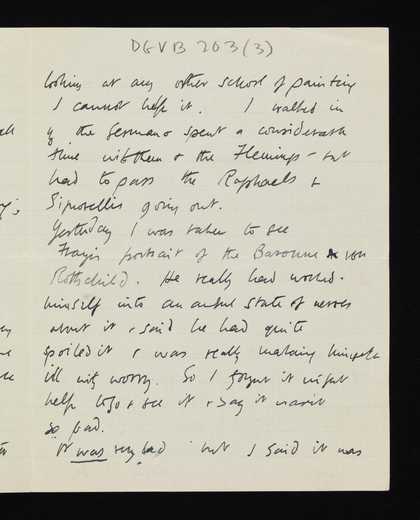 DGVB 203(3)
looking at any other school of painting
I cannot help it. I walked in
to the Germans & spent a considerable
time with them & the Flemings – but
had to pass the Raphaels &
Signorellis going out.
Yesterday I was taken to see
portrait of the Baronne von
Rothschild. He really had worked
himself into an awful state of nerves
about it & said he had quite
spoiled it & was really making himself
ill with worry. So I thought it might
help to go & see it & say it wasn't
so bad.
It was very bad but I said it was